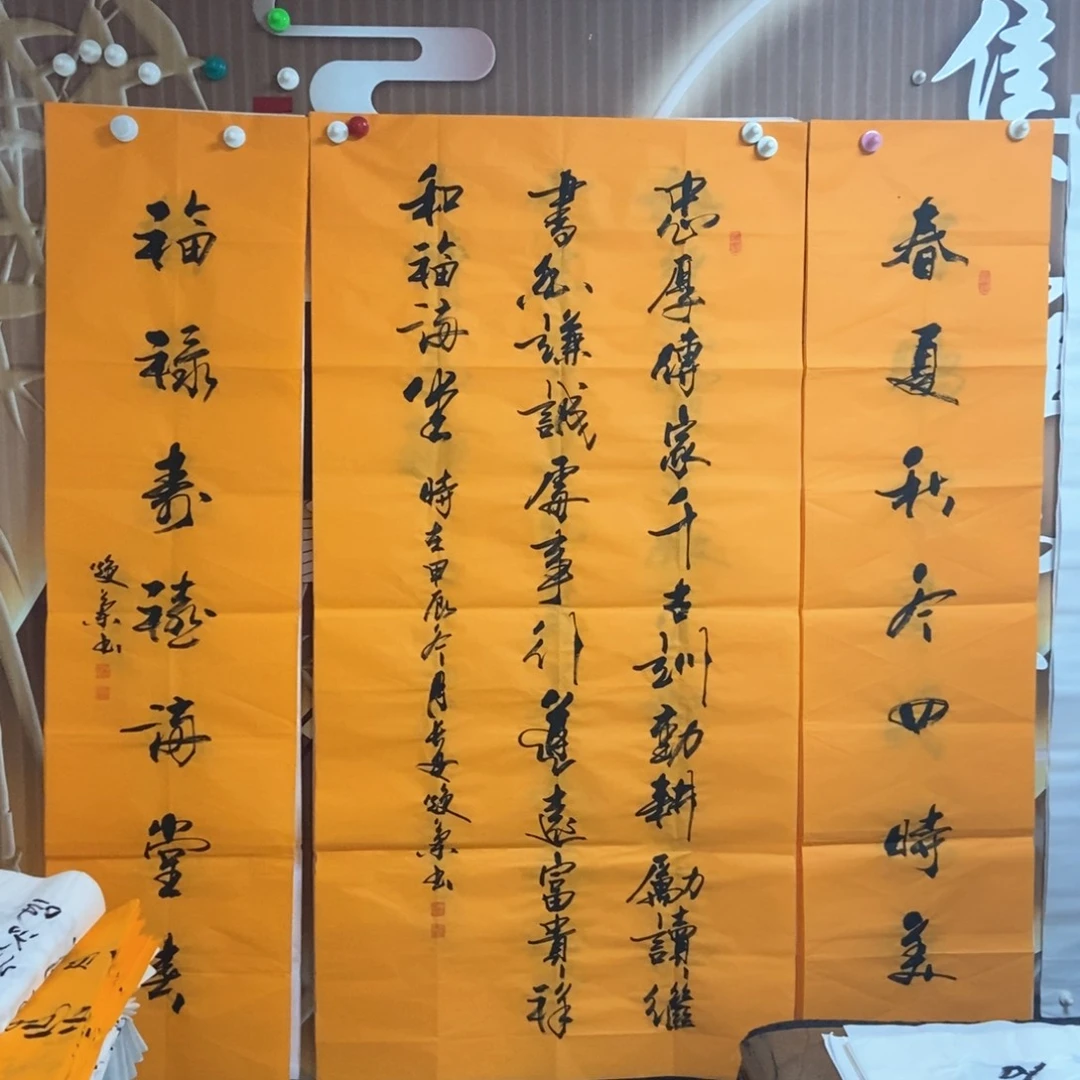 佳
春夏秋冬四時美
忠厚傳家千古訓勤耕勵讀繼
書香謙誠處事行遠富貴祥
和福滿堂 時在甲辰冬月長安煥書
福禄壽禧滿堂春
煥書